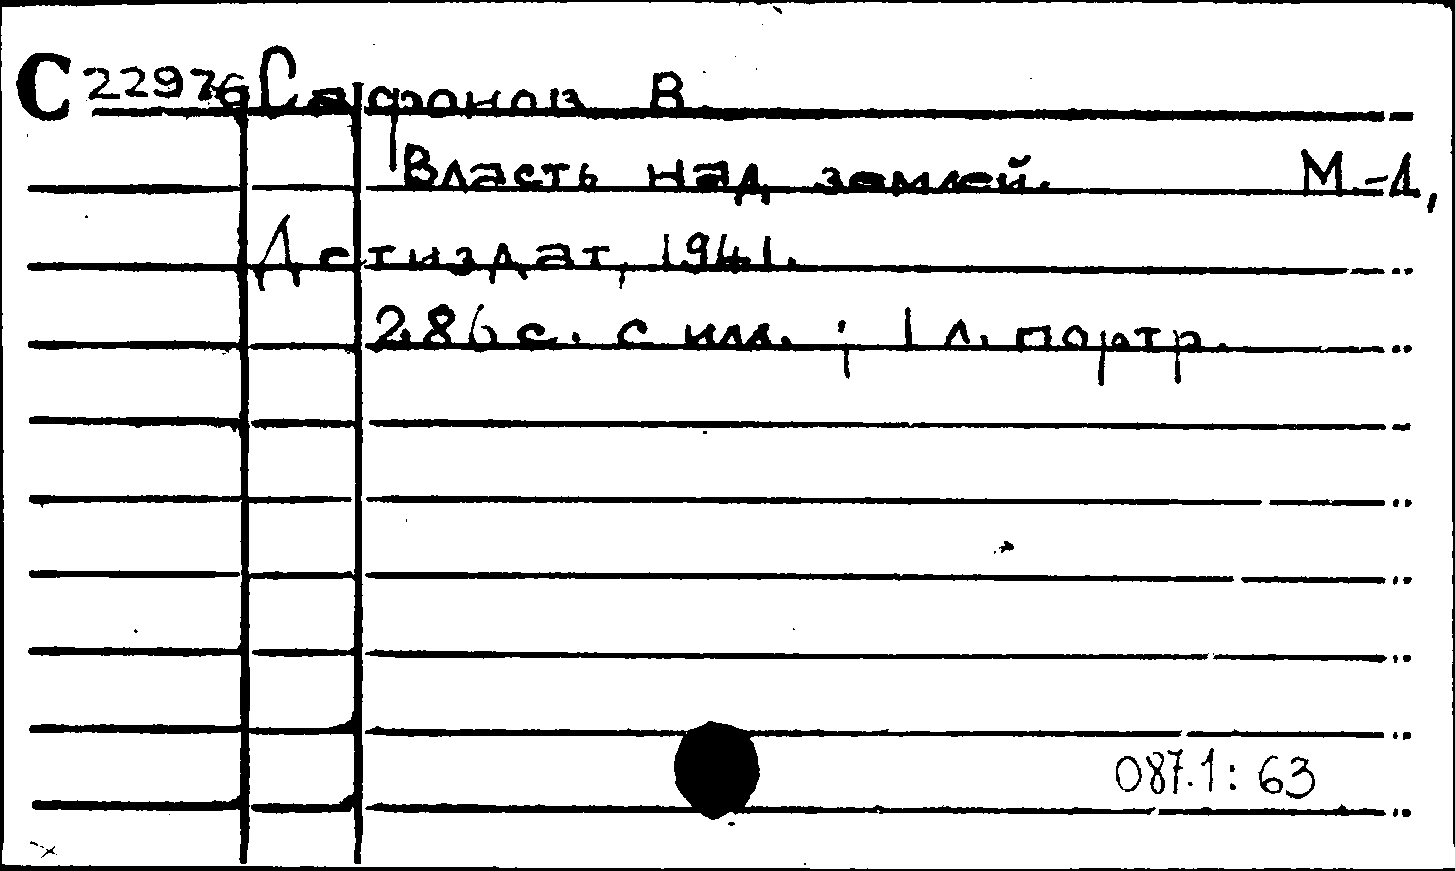 С 22976 Сафонов В.
Власть над землей. М.-Л,
Детиздат, 1941.
286 с. с илл. ; 1 л. портр.
087.1: 63